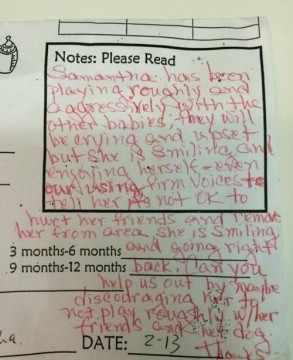 Notes: Please Read
Samantha has been
playing roughly and
aggressively with the
other babies, they will
be crying and upset
but she is smiling and
enjoying herself - even
our using firm voices to
tell her it's not OK to
hurt her friends and remove
her from area she is smiling
3 months-6 months and going right
9 months-12 months back. Can you
help us out by maybe
discouraging her to
not play roughly w/her
friends and her dog.
Thanks
DATE: 2-13